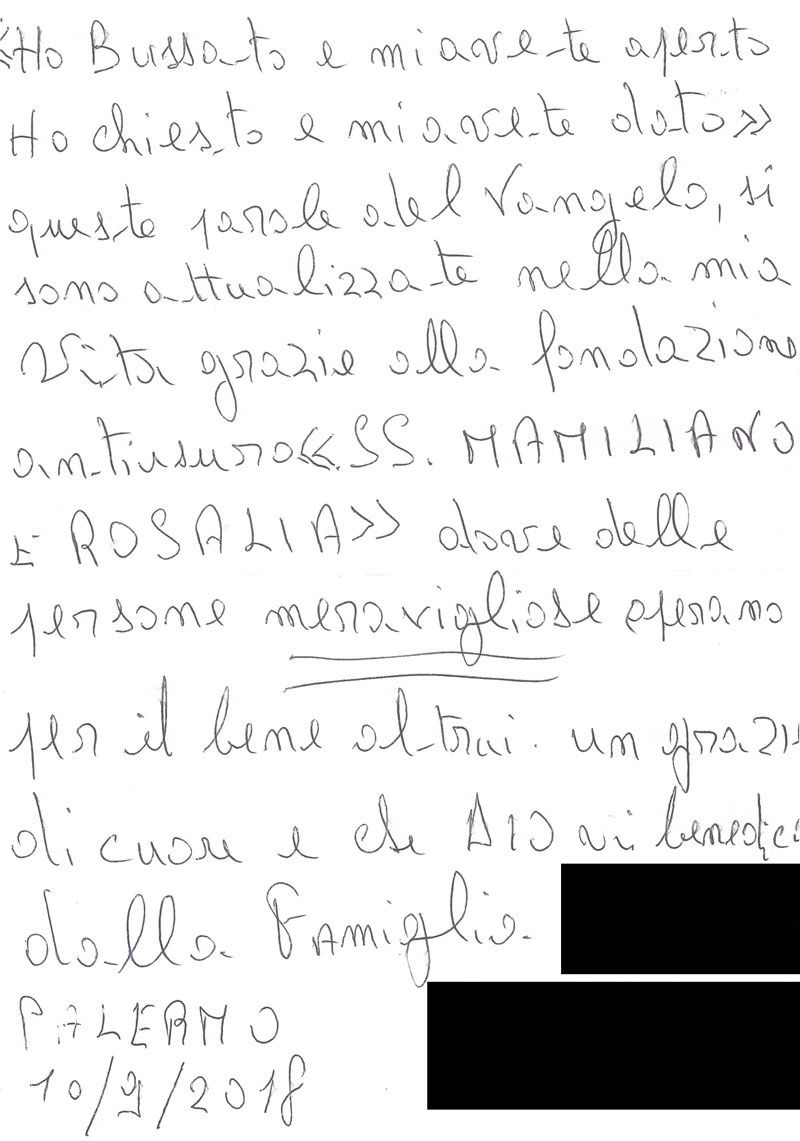 «Ho Bussato e mi avete aperto
Ho chiesto e mi avete dato»
queste parole del Vangelo, si
sono attualizzate nella mia
Vita grazie alla fondazione
antiusura «SS. MAMILIANO
E ROSALIA» dove delle
persone meravigliose operano
per il bene altrui. un grazie
di cuore e che DIO vi benedica
dalla Famiglia
PALERMO
10/9/2018